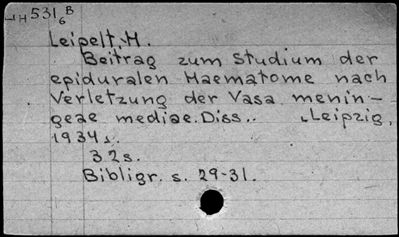 LH 531 B
6
Leipelt, H.
Beitrag zum Studium der
epiduralen Haematome nach
Verletzung der Vasa menin-
geae mediae. Diss.. Leipzig,
1934.
32s.
Bibligr. s. 29-31.